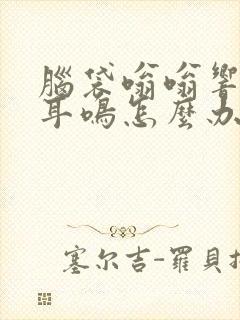 腦袋嗡嗡響
耳鳴怎麼办
塞尔吉-羅貝托